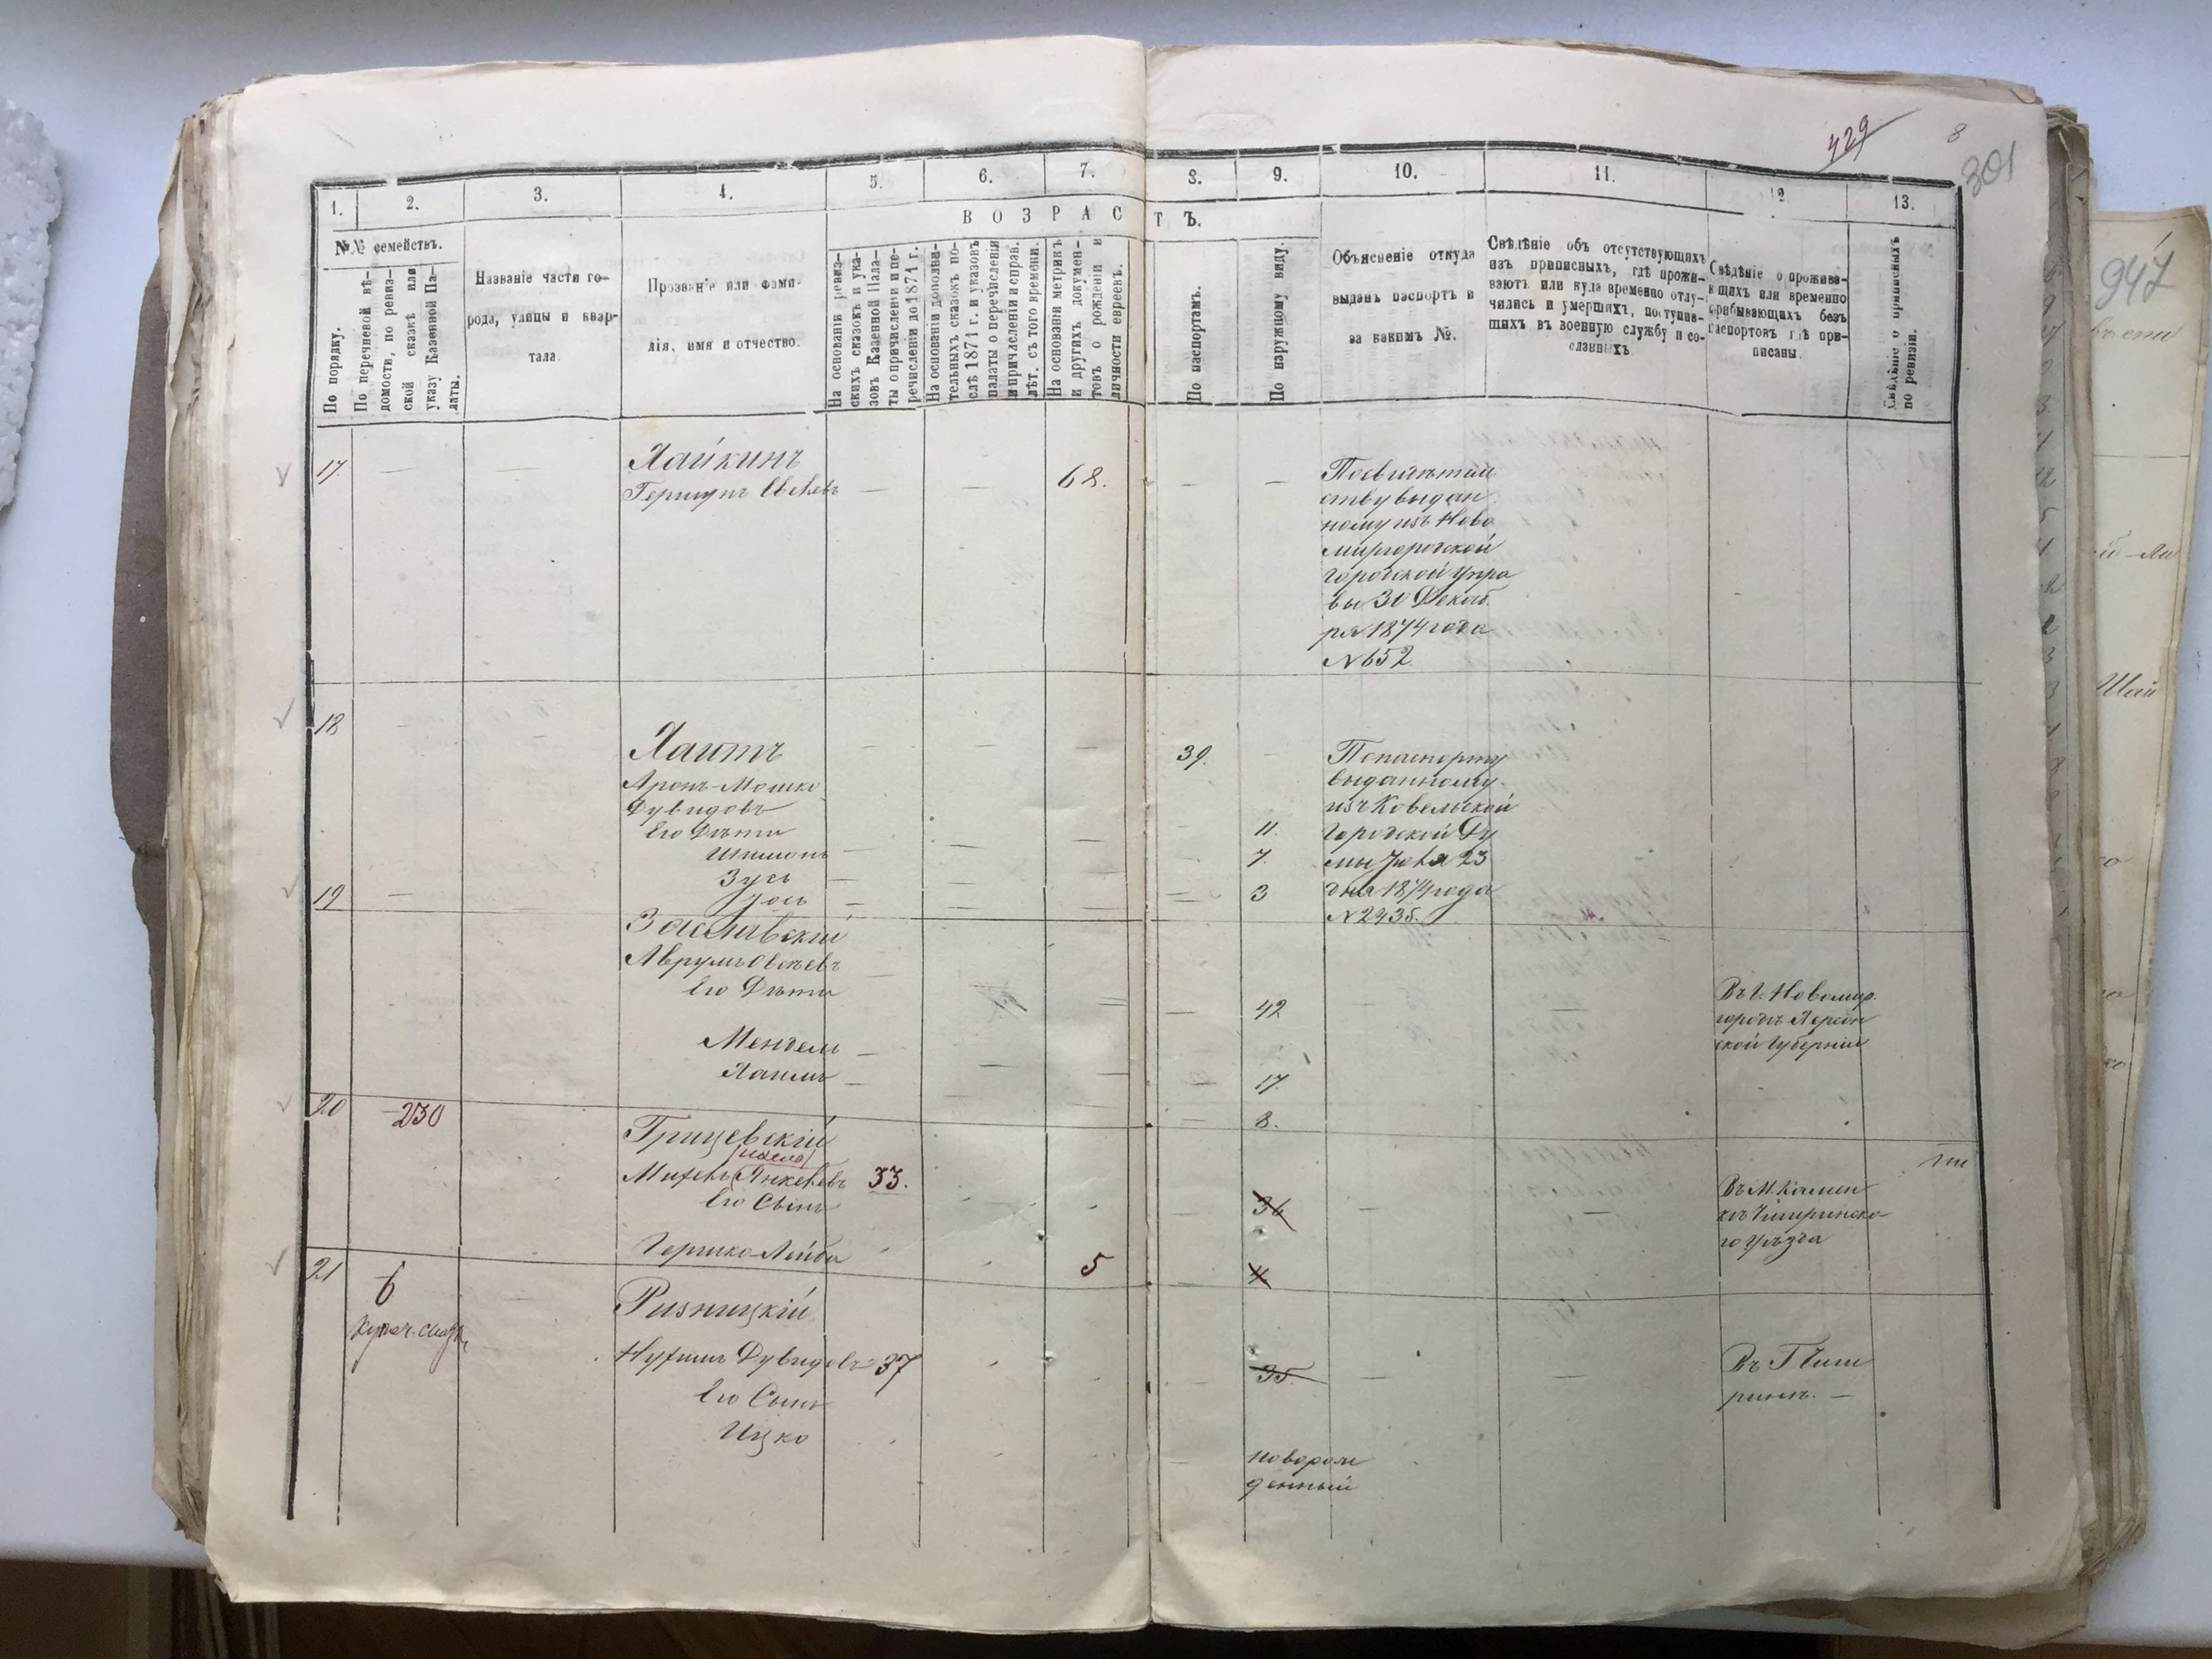 429
8
301
1.
2.
3.
4.
5.
6.
7.
8.
9.
10.
11.
12.
13.
№№ семействъ.
По порядку.
По перечневой вѣ-
домости, по ревиз-
ской сказкѣ или
указу Казенной Па-
латы.
Названіе части го-
рода, улицы и квар-
тала.
Прозваніе или фами-
лія, имя и отчество.
ВОЗРАСТЪ.
На основаніи ревиз-
скихъ сказокъ и ука-
зовъ Казенной Пала-
ты о причисленіи и пе-
речисленіи до 1874 г.
На основаніи дополни-
тельныхъ сказокъ по-
слѣ 1874 г. и указовъ
палаты о перечисленіи
и причисленіи и справ.
лѣт. съ того времени.
На основаніи метрикъ
и другихъ докумен-
товъ о рожденіи и
личности евреевъ.
По паспортамъ.
По наружному виду.
Объясненіе откуда
выданъ паспортъ и
за какимъ №.
Свѣдѣніе объ отсутствующихъ
изъ приписныхъ, гдѣ прожи-
ваютъ или куда временно отлу-
чились и умершихъ, поступив-
шихъ въ военную службу и со-
сланныхъ.
Свѣдѣніе о прожива-
ющихъ или временно
прибывающихъ безъ
паспортовъ гдѣ при-
писаны.
Свѣдѣніе о приписныхъ
по ревизіи.
17.
Хайкинъ
Гершунъ
68.
Посвидѣтель
ству выдан
ному изъ Ново
миргородской
городской Упра
вы 30 Декаб.
ря 1874 года
№ 652.
18
Хаитъ
39.
Аронъ-Мошко
Дувидовъ
Его Дѣти
Шимонъ
11.
Зусь
7.
3
Попаспорту
выданному
изъ Ковельской
городской Ду
мы 23
дня 1874 года
№ 2435.
19
Заславскій
Аврумъ Овсѣевъ
42
Его Дѣти
Мендель
17.
Хаимъ
8.
Въ г. Новомир.
городѣ Херсон
ской Губерніи
20
230
Грицевскій
Михель Янкелевъ
33.
36
Его Сынъ
Гершко-Лейба
5
4
Въ М. Камен
кѣ Чигиринска
го Уѣзда
21
6
Купеч. сказк.
Ризницкій
Нухимъ Дувидовъ
37
35
Его Сынъ
Ицко
новорож
денный
Въ Г Чиги
ринѣ.
947